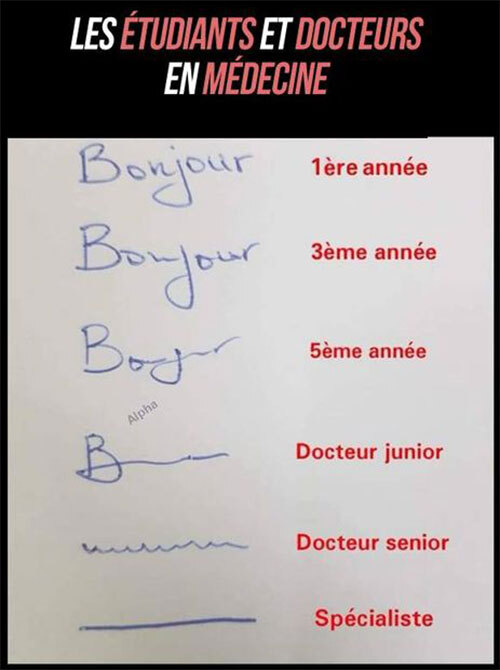 LES ÉTUDIANTS ET DOCTEURS
EN MÉDECINE
Bonjour 1ère année
Bonjour 3ème année
5ème année
Alpha
Docteur junior
Docteur senior
Spécialiste